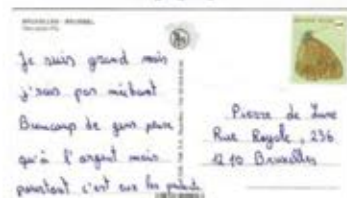 BRUXELLES - BRUSSEL
Je suis grand mais
j'suis pas méchant
Beaucoup de gens pense
qu'à l'argent mais
pourtant c'est eux les
Pierre de Lune
Rue Royale, 236
1210 Bruxelles